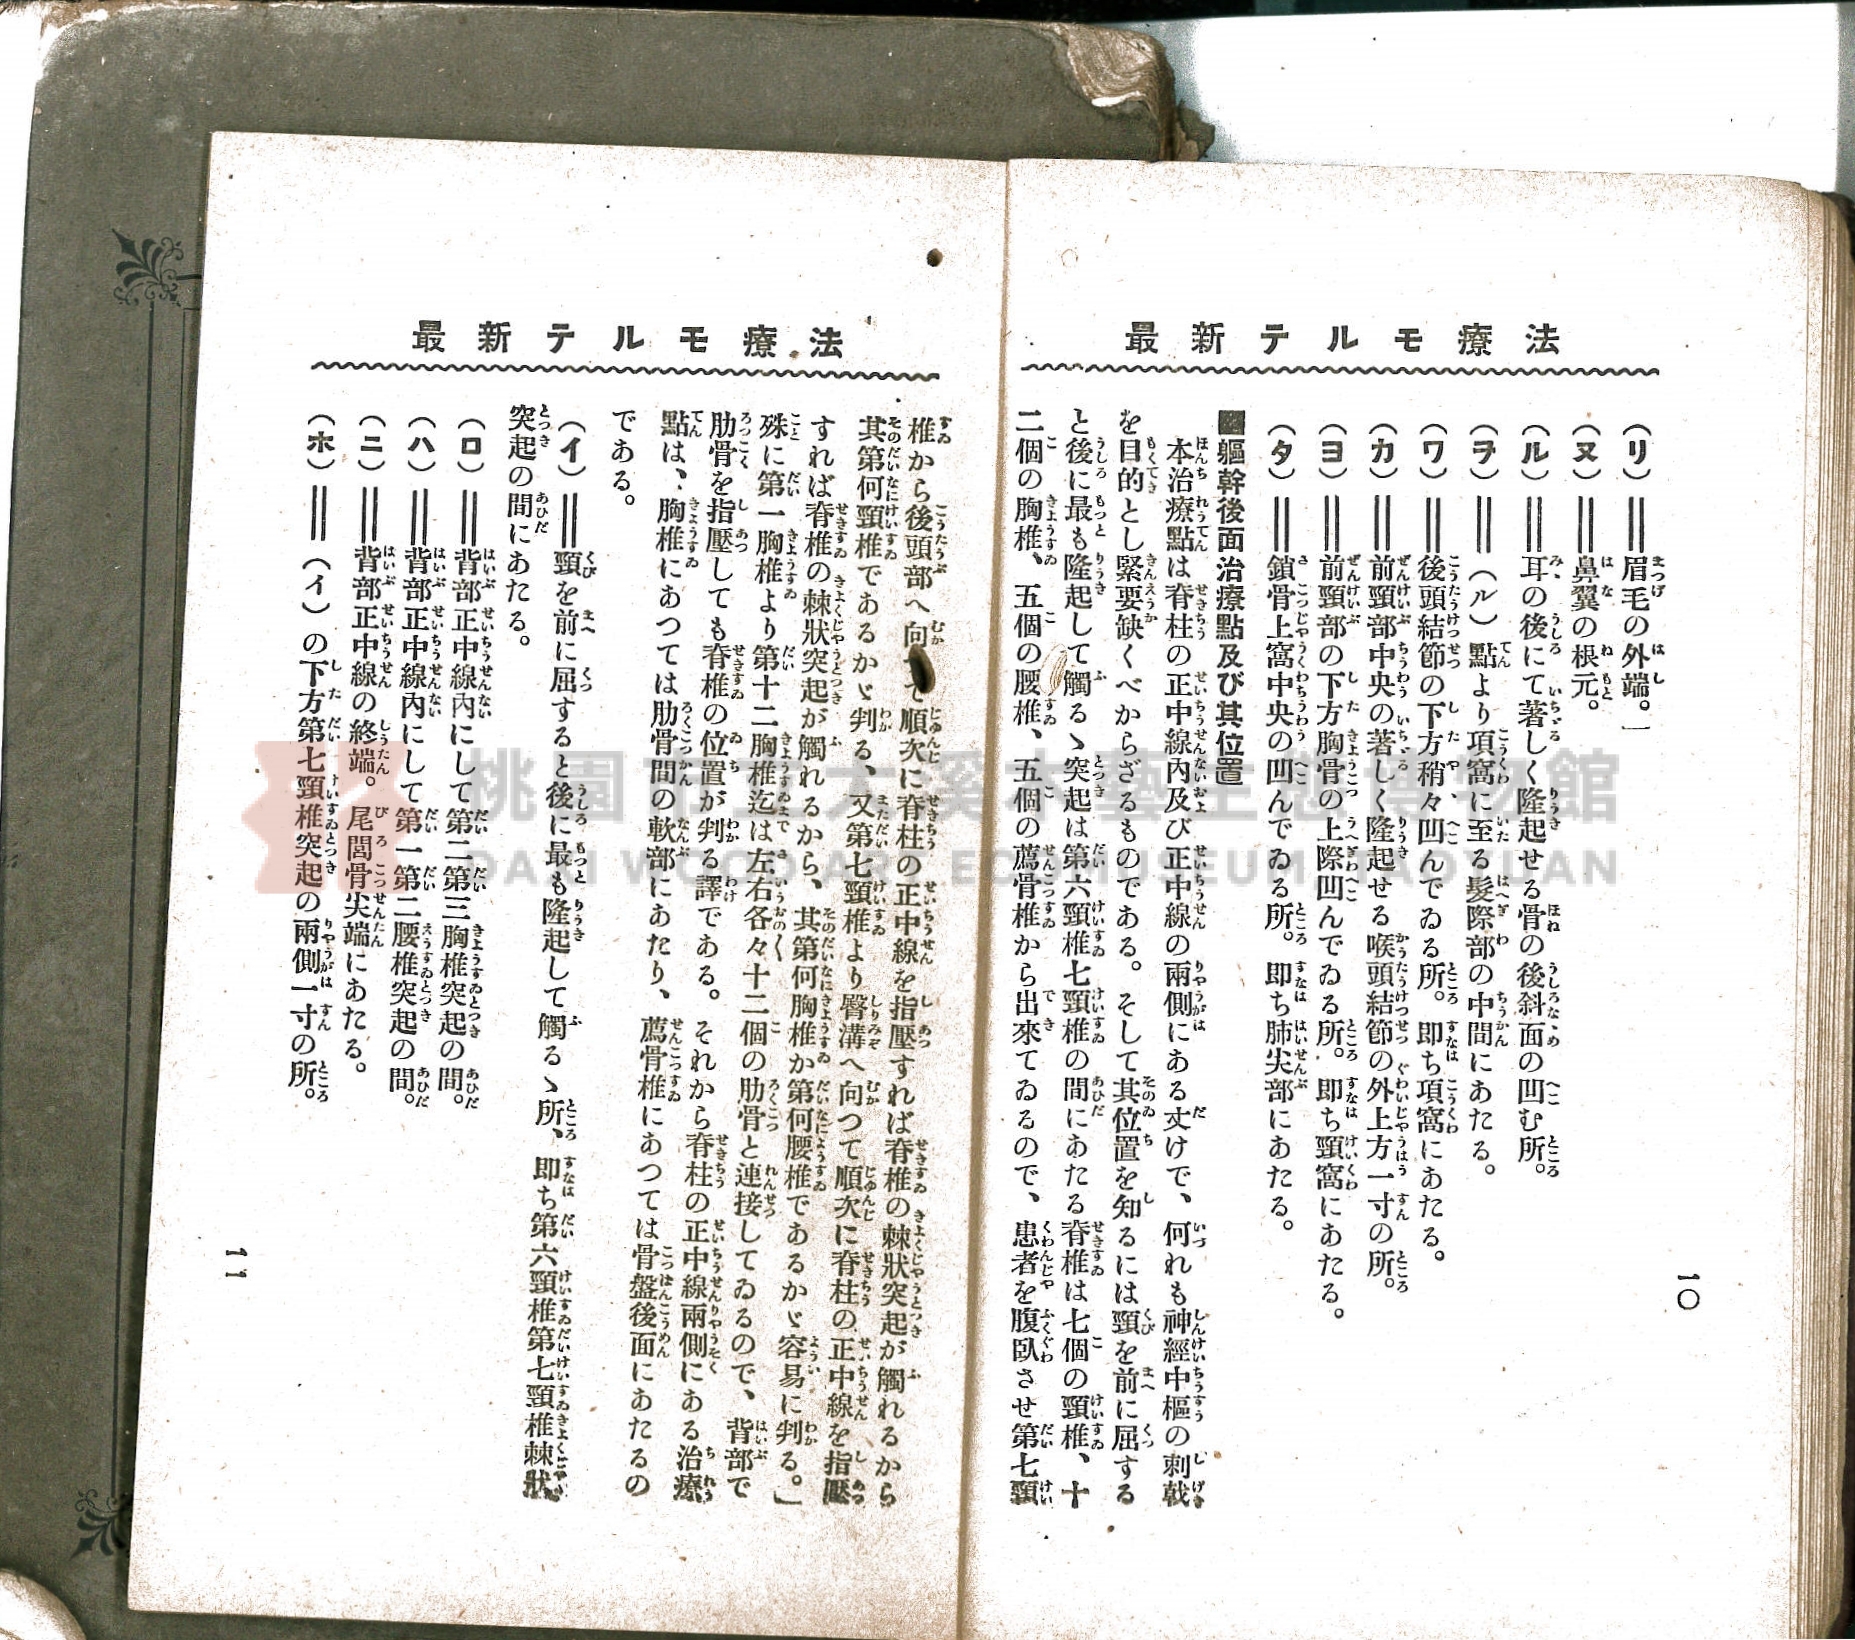 最新テルモ療法
(リ)═眉毛の外端。
(ヌ)═鼻翼の根元。
(ル)═耳の後にて著しく隆起せる骨の後斜面の凹む所。
(ヲ)═(ル)點より項窩に至る髮際部の中間にあたる。
(ワ)═後頭結節の下方稍々凹んでゐる所。即ち項窩にあたる。
(カ)═前頸部中央の著しく隆起せる喉頭結節の外上方一寸の所。
(ヨ)═前頸部の下方胸骨の上際凹んでゐる所。即ち頸窩にあたる。
(タ)═鎖骨上窩中央の凹んでゐる所。即ち肺尖部にあたる。
■軀幹後面治療點及び其位置
本治療點は脊柱の正中線內及び正中線の兩側にある丈けで、何れも神經中樞の刺戟
を目的とし緊要缺くべからざるものである。そして其位置を知るには頸を前に屈する
と後に最も隆起して觸るゝ突起は第六頸椎七頸椎の間にあたる脊椎は七個の頸椎、十
二個の胸椎、五個の腰椎、五個の薦骨椎から出來てゐるので、患者を腹臥させ第七頸
一〇
最新テルモ療法
椎から後頭部へ向つて順次に脊柱の正中線を指壓すれば脊椎の棘狀突起が觸れるから
其第何頸椎であるかゞ判る、又第七頸椎より臀溝へ向つて順次に脊柱の正中線を指壓
すれば脊椎の棘狀突起が觸れるから、其第何胸椎か第何腰椎であるかゞ容易に判る。」
殊に第一胸椎より第十二胸椎迄は左右各々十二個の肋骨と連接してゐるので、背部で
肋骨を指壓しても脊椎の位置が判る譯である。それから脊柱の正中線兩側にある治療
點は、胸椎にあつては肋骨間の軟部にあたり、薦骨椎にあつては骨盤後面にあたるの
である。
(イ)═頸を前に屈すると後に最も隆起して觸るゝ所、即ち第六頸椎第七頸椎棘狀
突起の間にあたる。
(ロ)═背部正中線內にして第二第三胸椎突起の間。
(ハ)═背部正中線內にして第一第二腰椎突起の間。
(ニ)═背部正中線の終端。尾閭骨尖端にあたる。
(ホ)═(イ)の下方第七頸椎突起の兩側一寸の所。
一一
桃園市立大溪木藝生態博物館
DAXI WOOD ART ECOMUSEUM, TAOYUAN